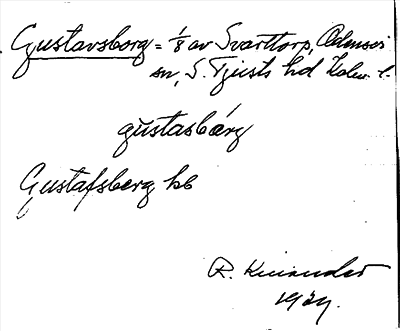 Gustavsborg = 1/8 av Svarttorp, Odensvi
sn, S. Tjusts hd Kalm. l.
gŭstasbárg
Gustafsberg hb
R. Kinander